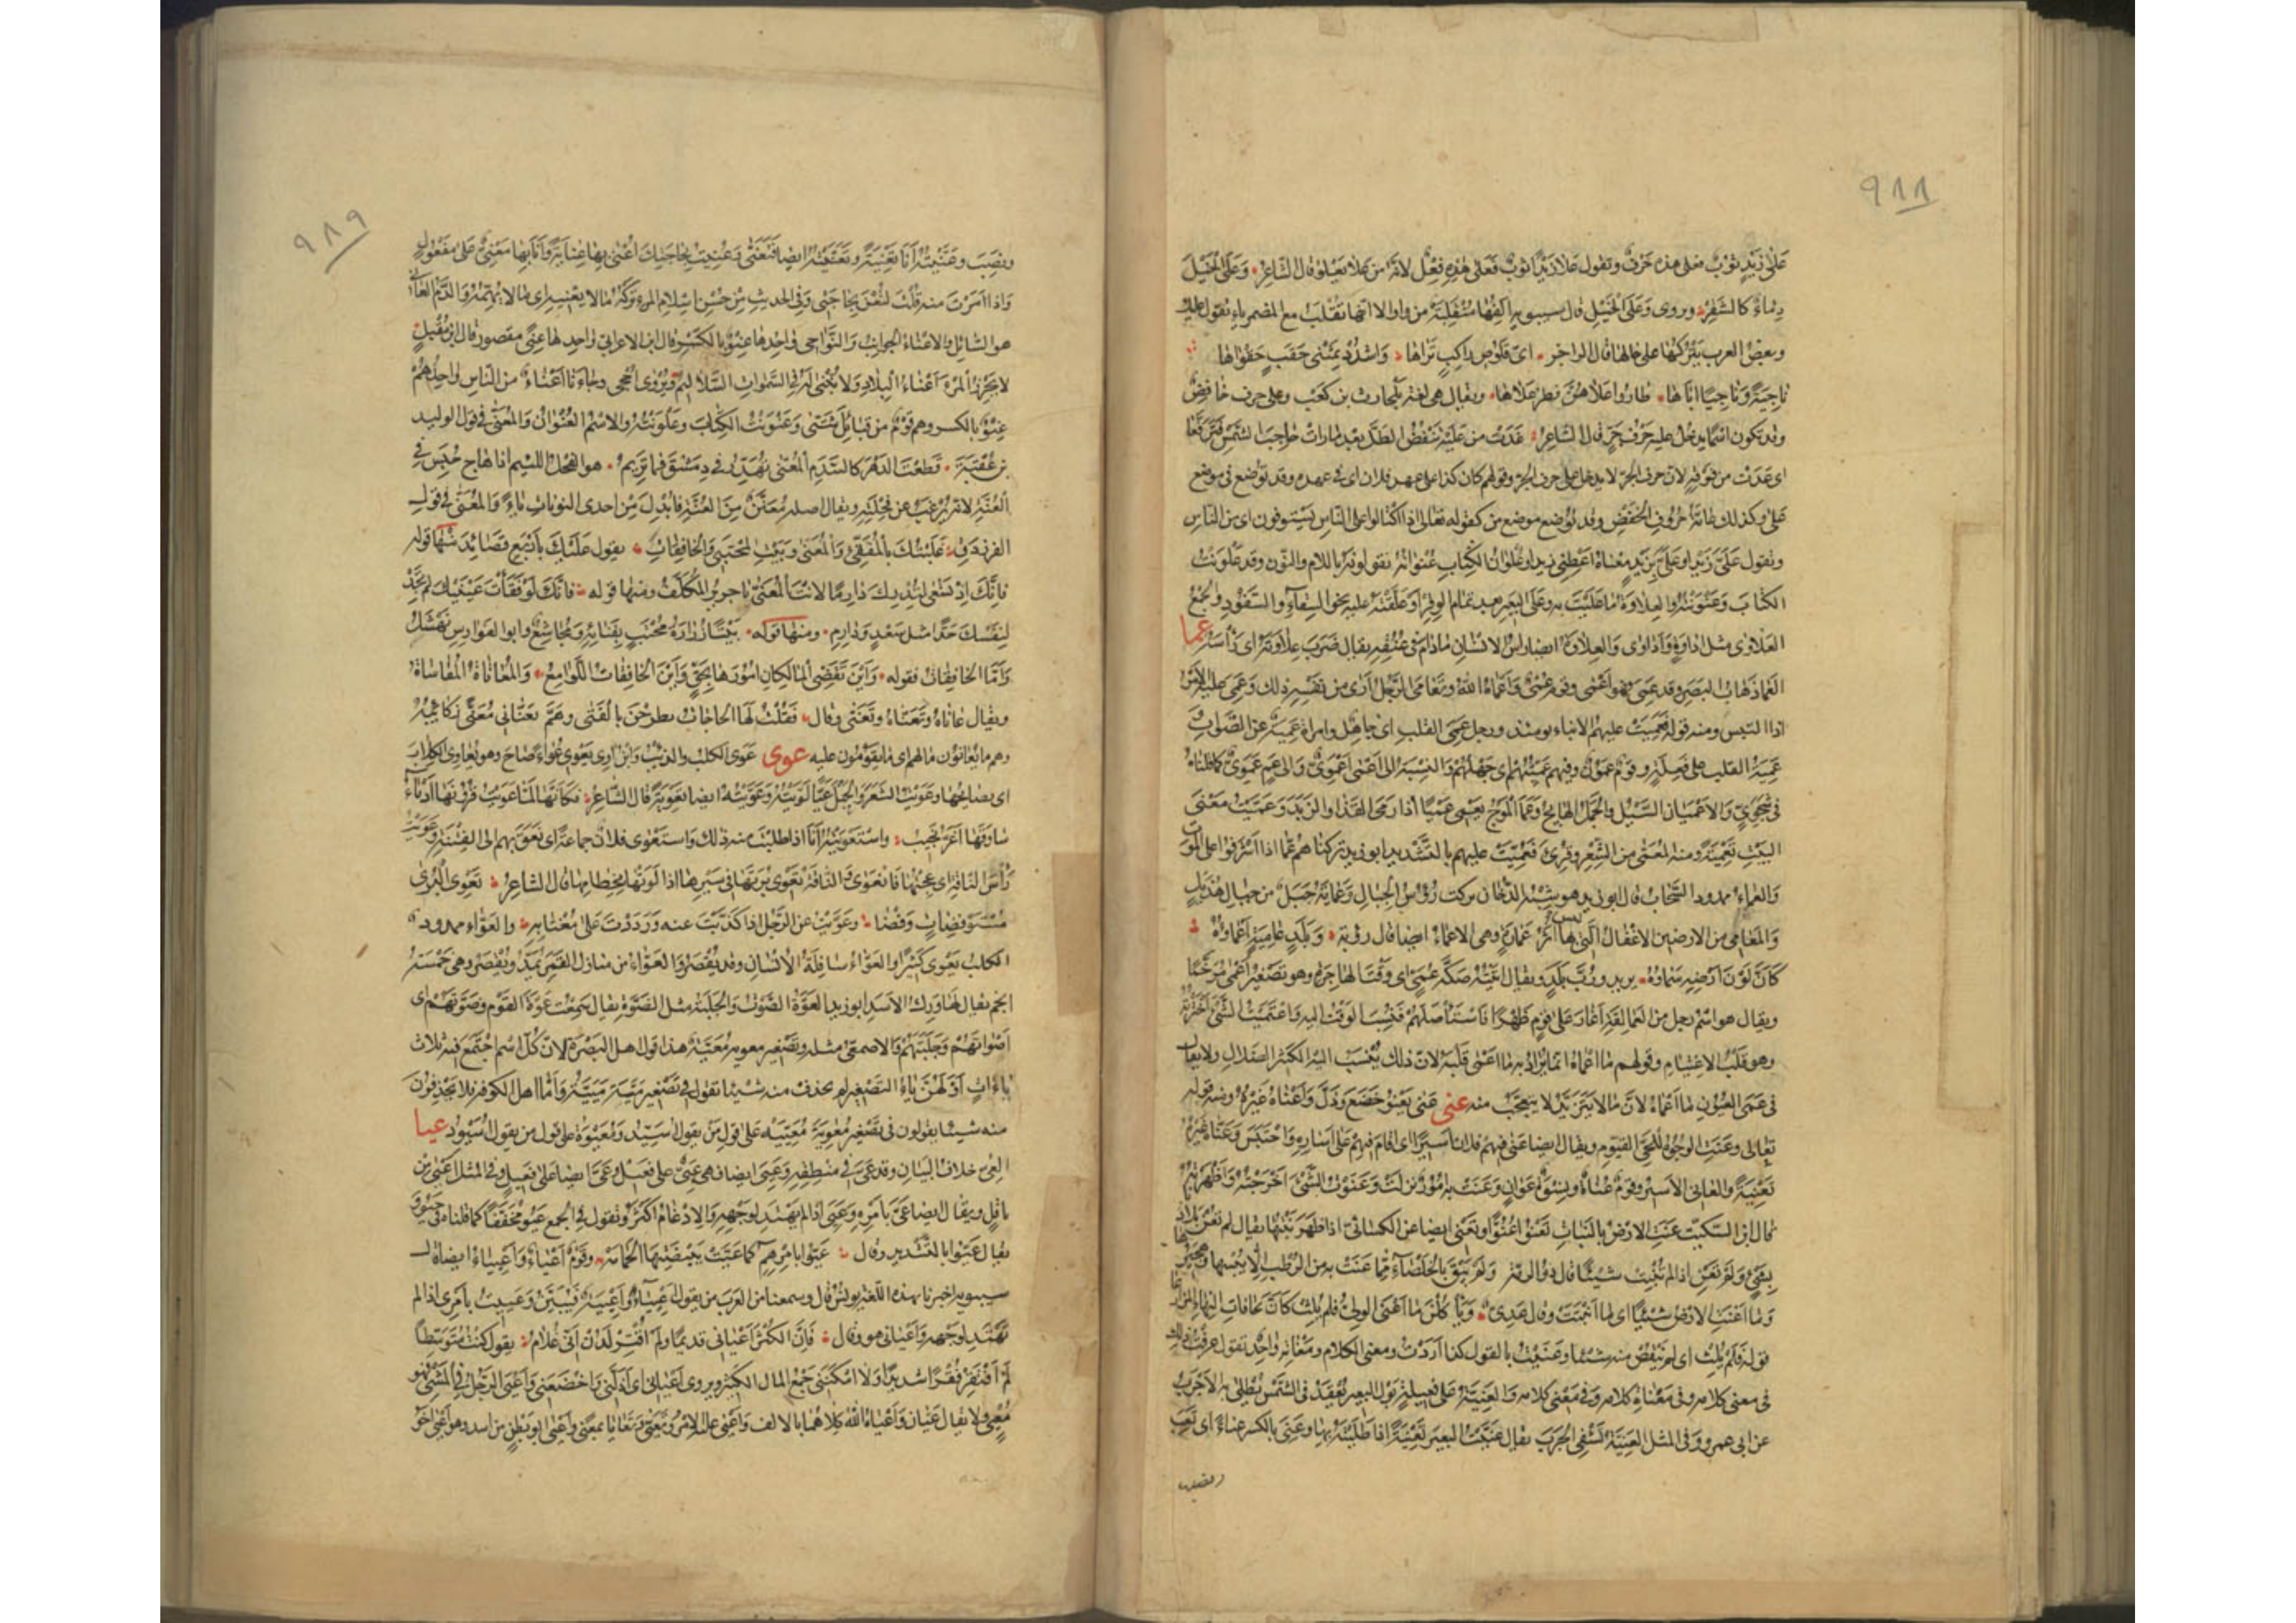 ٩٨٨
عَلٰى زَيْدٍ ثوبٌ فعلى هذه حَرْفٌ وتقول عَلَا زَيْدًا ثوبٌ فَعَلى هٰذِهِ فِعْلٌ لانّه من عَلَا يَعْلُو قال الشّاعِرُ وَعَلَى الخَيْلِ
دِمَاءٌ كالشَّقِرْ ويروى وَعَلَى الخَيْلِ قال سيبويه اَلِفُهَا مُنْقَلِبَةٌ من واو الا انّها تُقْلَبُ مع المضمر ياء تقول عليك
وبعض العرب يَتْرُكُهَا على حالها قال الراجز اىّ قَلُوصِ راكِبٍ تَرَاهَا وَاشْدُدْ بِمَثْنَى حَقَبٍ حَقْوَاهَا
نَاجِيَةً وَنَاجِيًا اَبَاهَا طَارُوا عَلَاهُنَّ فَطِرْ عَلَاهَا ويقال هى لغة بلحارث بن كعب وعلى حرف خافض
وقد تكون اسما يدخل عليه حَرْفُ جَرٍّ قال الشاعر غَدَتْ من عَلَيْهِ تَنْفُضُ الطَلَّ بعد ما رأت حاجب الشمس فترفّعا
اى غدت من فوقه لان حرف الجرّ لا يدخل على حرف الجرّ وقولهم كان كذا على عهد فلان اى فى عهده وقد توضع فى موضع
عن وكذلك عامّة حُرُوفِ الخَفْضِ وقد توضع موضع من كقوله تعالى اذا اكتالوا على الناس يستوفون اى من الناس
وتقول عَلَىَّ زَيْدًا وعَلَىَّ بِزَيْدٍ معناه اَعْطِنى زيدا وعُلْوَانُ الكِتَابِ عُنْوَانُهُ يقولونه باللام والنّون وقد عَلْوَنْتُ
الكتابَ وَعَنْوَنْتُهُ والعِلَاوَةُ ما عَلَّيْتَ به على البعير بعد تمام الوِقْرِ او عَلَّقْتَهُ عليه نحو السِّقَاءِ والسَّفُّودِ والجمعُ
العَلَاوَى مثل اِدَاوَةٍ وَاَدَاوَى والعِلَاوَةُ ايضا رأس الانسان ما دام فى عُنُقِهِ يقال ضَرَبَ عِلَاوَتَهُ اى رَأْسَهُ عما
العَمَى ذَهَابُ البَصَرِ وقد عَمِىَ فهو اَعْمَى وقوم عُمْىٌ وَاَعْمَاهُ اللّٰهُ وتَعَامَى الرَّجُلُ اَرَى من نفسه ذلك وعَمِىَ عليه الأَمْرُ
اذا التبس ومنه قوله فَعَمِيَتْ عليهم الانباء يومئذ ورجل عَمِى القلب اى جاهل وامرأة عَمِيَةٌ عن الصَّوَابِ و
عَمِيَةُ القلب على فَعِلَةٍ وقوم عَمُونَ وفيهم عَمِيَّتُهُمْ اى جَهْلُهُمْ والنسبة الى اعمى اَعْمَوِىٌّ والى عَمٍ عَمَوِىٌّ كما قلناه
فى شَجَوِىٍّ وَالاَعْمَيَانِ السَّيْلُ والجَمَلُ الهائِجُ وعَمَى المَوْجُ يَعْمِى عَمْيًا اذا رمى القَذَى والزَبَدَ وعَمَّيْتُ مَعْنَى
البَيْتِ تَعْمِيَةً ومنه المُعَمَّى من الشِّعْرِ وقُرِئَ فَعُمِّيَتْ عليهم بالتشديد ابو زيد تركناهم عُمَّى اذا اشرفوا على الموت
والعَمَاءُ ممدودا السَّحَابُ قال ابو زيد هو شِبْهُ الدُّخَانِ يركب رُؤُسَ الجِبَالِ وعَمَايَةُ جَبَلٌ من جبال هُذَيْلٍ
وَالمَعَامِى من الارضين الاَغْفَالُ الَّتِى ليس بها اَثَرُ عِمَارَةٍ وهى الاَعْمَاءُ ايضا قال رؤبة وَبَلَدٍ عَامِيَةٍ اَعْمَاؤُهُ
كَاَنَّ لَوْنَ اَرْضِهِ سَمَاؤُهُ يريد ورُبَّ بَلَدٍ ويقال لَقِيتُهُ صَكَّةَ عُمَىٍّ اى وقت الهاجرة وهو تصغير اَعْمَى مُرَخَّمًا
ويقال هو اسم رجل من العَمَالِقَةِ اَغَارَ عَلَى قَوْمٍ ظُهْرًا فَاسْتَأْصَلَهُمْ فنُسِبَ الوقت اليه واعْتَمَيْتُ الشَّىْءَ اخْتَرْتُهُ
وهو قَلْبُ الاِعْتِيَامِ وقولهم ما اَعْمَاهُ انما يُرَادُ به ما اَعْمَى قَلْبَهُ لانّ ذلك يُنْسَبُ اليه الكَثِيرُ الضَلَالِ ولا يقال
فى عَمَى العُيُونِ ما اَعْمَاهُ لانّ ما لا يَتَزَيَّدُ لا يُتَعَجَّبُ منه عنى عَنَى يَعْنُو خَضَعَ وَذَلَّ وَاَعْنَاهُ غَيْرُهُ ومنه قوله
تعالى وَعَنَتِ الوُجُوهُ لِلْحَىِّ القَيُّومِ ويقال ايضا عَنَى فيهم فلان اَسِيرًا اى اقام فيهم على اِسَارِهِ وَاحْتَبَسَ وعَنَّاهُ غَيْرُهُ
تَعْنِيَةً والعَانِى الاَسِيرُ وقوم عُنَاةٌ ونِسْوَةٌ عَوَانٍ وعَنَتْ به امور نزلت وعَنَوْتُ الشَّىْءَ اَخْرَجْتُهُ وَاَظْهَرْتُهُ
قال ابن السكّيت عَنَتِ الارضُ بالنبات تَعْنُو عُنُوًّا وتَعْنِى ايضا عن الكسائىّ اذا ظهر نَبْتُهَا يقال لم تَعْنُ بلادنا
بشىء ولم تَعْنِ اذا لم تُنْبِتْ شيئا قال ذو الرمّة وَلَمْ يَبْقَ بِالخَلْصَاءِ مِمَّا عَنَتْ بِهِ مِنَ الرُّطْبِ اِلَّا يُبْسُهَا وَهَجِيرُهَا
وَمَا اَعْنَتِ الارضُ شيئا اى ما اَنْبَتَتْ وقال عَدِىٌّ وَيَأْكُلْنَ مَا اَعْنَى الوَلِىُّ فَلَمْ يُلِثْ كَاَنَّ بِحَافَاتِ النِّهَاءِ المَزَارِعَا
قوله فَلَمْ يُلِثْ اى لم يَنْقُصْ منه شيئا وعَنَيْتُ بالقول كذا اَرَدْتُ ومعنى الكلام ومَعْنَاتُهُ واحد تقول عرفت ذلك
فى معنى كلامه وفى مَعْنَاةِ كلامه وفى مَعْنِىِّ كلامه والعَنِيَّةُ على فَعِيلَةٍ بَوْلُ البعير يُعْقَدُ فى الشَّمْسِ يُطْلَى به الاَجْرَبُ
عن ابى عمرو وفى المثل العَنِيَّةُ تَشْفِى الجَرَبَ يقال عَنَّيْتُ البعير تَعْنِيَةً اذا طَلَيْتَهُ بها وعَنِىَ بالكسر عَنَاءً اى تَعِبَ
ونصب
٩٨٩
ونَصِبَ وعَنَّيْتُهُ اَنَا تَعْنِيَةً وتَعَنَّيْتُهُ ايضا فَتَعَنَّى وعُنِيتُ بحاجتك اُعْنَى بها عِنَايَةً وَاَنَا بها مَعْنِىٌّ عَلَى مَفْعُولٍ
وَاذا اَمَرْتَ منه قُلْتَ لِتُعْنَ بِحَاجَتِى وفى الحديث مِنْ حُسْنِ اِسْلَامِ المَرْءِ تَرْكُهُ مَا لَا يَعْنِيهِ اى ما لا يُهِمُّهُ وَالدَّمُ العَانِى
هو السَّائِلُ والاَعْنَاءُ الجَوانِبُ والنَّوَاحِى واحدها عِنْوٌ بالكَسْرِ قال ابن الاعرابى واحدها عِنًى مقصور قال ابن مُقْبِلٍ
لا يُحْرِزُ المَرْءَ اَعْنَاءُ البِلَادِ وَلَا تُبْنَى لَهُ فى السَّمَواتِ السَّلَالِيمُ ويُرْوَى اَحْجَاءُ وجَاءَنَا اَعْنَاءٌ من النَّاسِ واحدهم
عِنْوٌ بالكسر وهم قَوْمٌ من قبائل شَتَّى وَعَنْوَنْتُ الكِتَابَ وعَلْوَنْتُهُ والاِسْمُ العُنْوَانُ وَالمُعَنَّى فى قول الوليد
بن عُقْبَةَ قَطَعْتَ الدَّهْرَ كَالسَّدِمِ المُعَنَّى تُهَدِّرُ فِى دِمَشْقَ فَمَا تَرِيمُ هو الفَحْلُ اللئيم اذا هاج حُبِسَ فى
العُنَّةِ لانّه يُرْغَبُ عن فِحْلَتِهِ ويقال اصله مُعَنَّنٌ مِنَ العُنَّةِ فابدل من احدى النونات ياءٌ وَالمُعَنَّى فى قول
الفرزدق غَلَبْتُكَ بالمُفَقِّئِ وَالمُعَنَّى وَبَيْتِ المُحْتَبِى وَالخَافِقَاتِ يقول غَلَبْتُكَ بِاَرْبَعِ قَصَائِدَ منها قوله
فَاِنَّكَ اِذْ تَسْعَى لِتُدْرِكَ دَارِمًا لَاَنْتَ المُعَنَّى يا جريرُ المُكَلَّفُ ومنها قوله فَاِنَّكَ لَوْ فَقَأْتَ عَيْنَيْكَ لَمْ تَجِدْ
لِنَفْسِكَ جَدًّا مِثْلَ سَعْدٍ وَدَارِمِ ومنها قوله بَيْتًا زُرَارَةُ مُحْتَبٍ بِفِنَائِهِ وَمُجَاشِعٌ وابو الفوارس نَهْشَلُ
وَاَمَّا الخَافِقَاتُ فقوله وَاَيْنَ تُقَضِّى المَالِكَانِ اُمُورَهَا بِحَقٍّ وَاَيْنَ الخَافِقَاتُ اللَّوَامِعُ وَالمُعَانَاةُ المُقَاسَاةُ
ويقال عَانَاهُ وتَعَنَّاهُ وتَعَنَّى وقال فَقُلْتُ لَهَا الحَاجَاتُ يَطْرَحْنَ بِالفَتَى وهَمٌّ تَعَنَّانِى مُعَنًّى رَكَائِبُهُ
وهم ما يُعَانُونَ مالهم اى ما يقومون عليه عوى عَوَى الكلبُ والذئبُ وابْنُ آوى يَعْوِى عُوَاءً صاح وهو يُعَاوِى الكِلَابَ
اى يصايحها وعَوَيْتُ الشَعَرَ والحَبْلَ عَيًّا لَوَيْتُهُ وعَوَّيْتُهُ ايضا تَعْوِيَةً قال الشّاعِرُ فَكَاَنَّهَا لَمَّا عَوَيْتُ قُرُونَهَا اَدْمَاءُ
سَاوَقَهَا اَغَرُّ نَجِيبُ واسْتَعْوَيْتُهُ اَنَا اذا طلبتَ منه ذلك واسْتَعْوَى فلان جماعةً اى نَعَقَ بهم الى الفِتْنَةِ وعَوَيْتُ
رَأْسَ النَّاقَةِ اى عُجْتُهَا فَانْعَوَى والنَّاقَةُ تَعْوِى بُرَتَهَا فى سيرها اذا لَوَتْهَا بِخِطَامِهَا قال الشاعر تَعْوِى البُرَى
مُسْتَوْفِضَاتٍ وَفْضَا وعَوَّيْتُ عن الرَّجُلِ اذا كَذَّبْتَ عنه وَرَدَدْتَ عَلَى مُغْتَابِهِ والعَوَّاءُ ممدود
الكلب يَعْوِى كثيرا والعَوَّاءُ سَافِلَةُ الاِنْسَانِ وقد يُقْصَرُ وَالعَوَّاءُ من منازل القَمَرِ يُمَدُّ ويُقْصَرُ وهى خَمْسَةُ
انجم يقال لها وَرِكُ الاَسَدِ ابو زيد العَوَّةُ الصَّوْتُ وَالجَلَبَةُ مِثْلُ الضَوَّةِ يقال سَمِعْتُ عَوَّةَ القَوْمِ وضَوَّتَهُمْ اى
اَصْوَاتَهُمْ وجَلَبَتَهُمْ والاصمعى مثله وتصغير معوية مُعَيَّةُ هذا قول اهل البَصْرَةِ لانّ كُلَّ اسم اجْتَمَعَ فيه ثلاث
ياءات اَوَّلُهُنَّ يَاءُ التَصْغِيرِ حذفت منه شيئا تقول فى تصغير مَيَّةَ مُيَيَّةُ وَاَمَّا اهل الكوفة فلا يَحْذِفُونَ
منه شيئا يقولون فى تصغير مُعٰوِيَةَ مُعَيِّيَةُ على قول مَنْ يقول اُسَيِّدٌ ومُعَيْوَةُ على قول من يقول اُسَيْوِدٌ عيا
العِىُّ خلاف البَيَانِ وقد عَىَّ فى مَنْطِقِهِ وعَيِىَ ايضا فهو عَيِىٌّ على فَعِيلٍ وعَىٌّ ايضا على فَعْلٍ وفى المثل اَعْيَى من
بَاقِلٍ ويقال ايضا عَىَّ بِاَمْرِهِ وعَيِىَ اذا لم يَهْتَدِ لوجهه وَالاِدْغَامُ اكثر وتقول فى الجمع عَيُوا مُخَفَّفًا كما قلناه فى حَيُوا و
يقال عَيُّوا بالتشديد وقال عَيُّوا بِاَمْرِهِمِ كَمَا عَيَّتْ بِبَيْضَتِهَا الحَمَامَهْ وقَوْمٌ اَعْيَاءٌ وَاَعْيِيَاءُ ايضا قال
سيبويه اخبرنا بهذه اللغة يونُسُ قال وسمعنا من العرب من يقول اَعْيِيَاءُ وَاَعْيِيَةٌ فَيُبَيِّنُ وعَيِيتُ بِاَمْرِى اذا لم
تَهْتَدِ لوجهه وَاَعْيَانِى هو وقال فَاِنَّ الكُثْرَ اَعْيَانِى قديمًا وَلَمْ اُقْتِرْ لَدُنْ اَنِّى غُلَامُ يقول كُنْتُ مُتَوَسِّطًا
لَمْ اَفْتَقِرْ فَقْرًا شديدًا وَلَا امْكَنَنِى جَمْعُ المال الكَثِيرِ ويروى اَعْنَانِى اى اَذَلَّنِى وَاَخْضَعَنِى وَاَعْيَى الرَّجُلُ فى المَشْىِ فهو
مُعْىٍ ولا يقال عَيَّانٌ وَاَعْيَاهُ اللّٰهُ كِلَاهُمَا بالالف وَاَعْيَى عليه الاَمْرُ وتَعَيَّى وتَعَايَا بمعنًى واَعْيَا ابو بَطْنٍ من اسد وهو اَعْيَا اَخُو